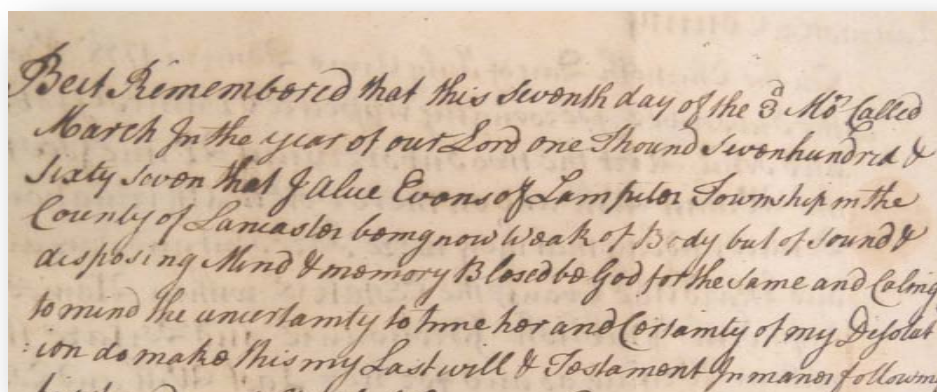 Beit Remembered that this seventh day of the 3d Mo: Called
March In the year of our Lord one Thound Sevenhundred &
Sixty seven that I Alice Evans of Lampiter Township in the
County of Lancaster being now Weak of Body but of sound &
disposing Mind & memory Blesed be God for the same and Caling
to mind the uncertainty to time her and Certainty of my Disolat
:ion do make this my Last will & Testament In maner followin